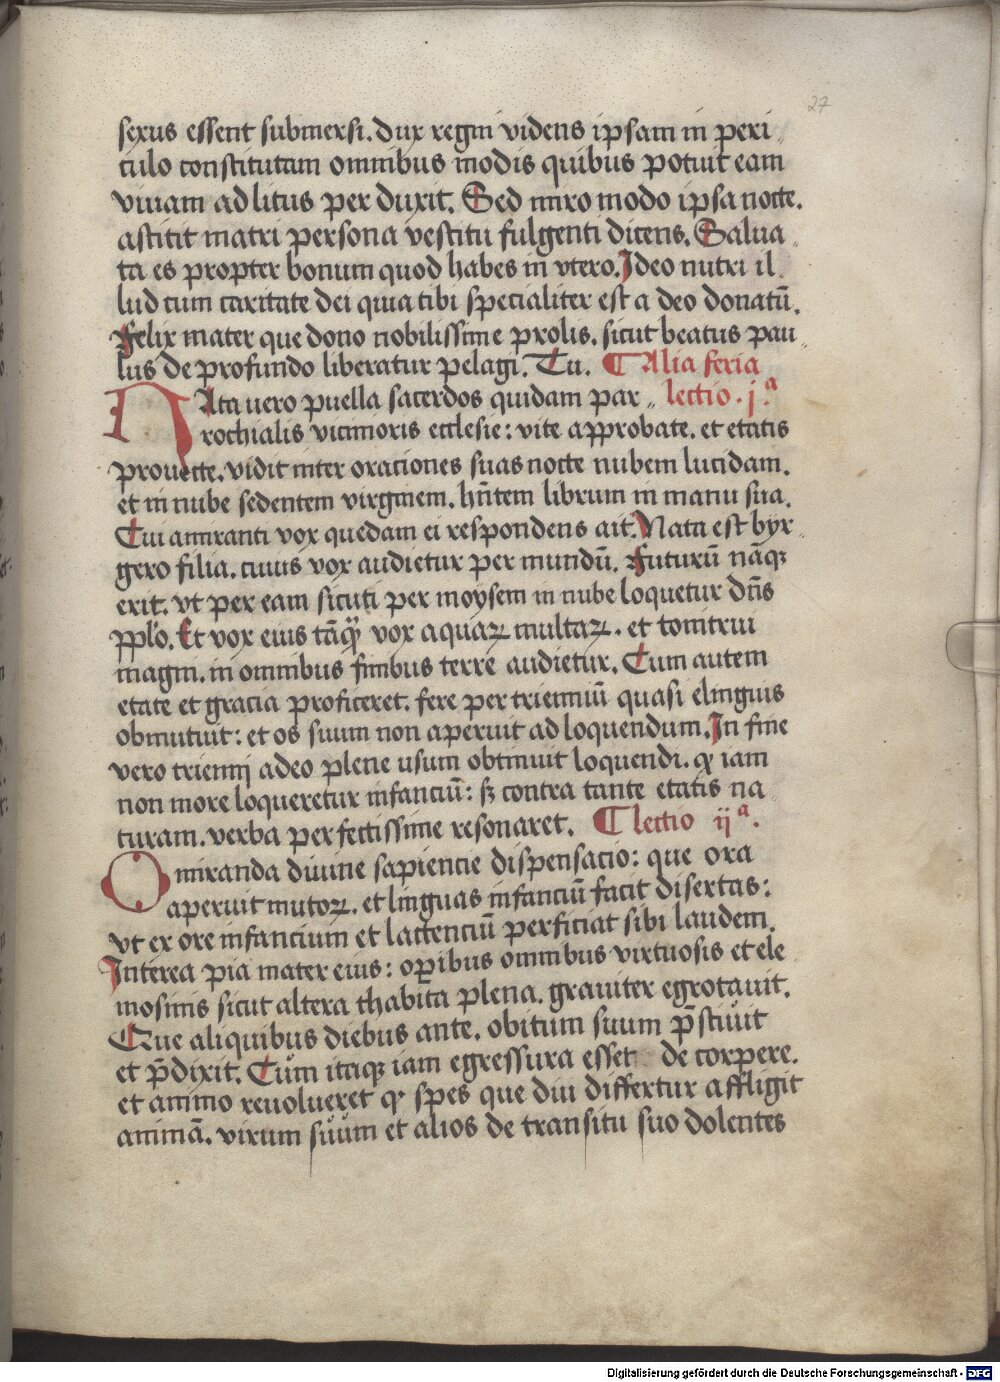 27
sexus essent submersi. dux regni videns ipsam in peri„
culo constitutam omnibus modis quibus potuit eam
viuam ad litus per duxit. Sed miro modo ipsa nocte.
astitit matri persona vestitu fulgenti dicens. Salua„
ta es propter bonum quod habes in vtero. Ideo nutri il„
lud cum caritate dei quia tibi specialiter est a deo donatū.
Felix mater que dono nobilissime prolis. sicut beatus pau„
lus de profundo liberatur pelagi. Tu. ¶ Alia feria
NAta uero puella sacerdos quidam par„ lectio. jª.
rochialis vicinioris ecclesie: vite approbate. et etatis
prouecte. vidit inter oraciones suas nocte nubem lucidam.
et in nube sedentem virginem. hn̄tem librum in manu sua.
Cui amiranti vox quedam ei respondens ait. Nata est byr„
gero filia. cuius vox audietur per mundū. Futurū nāqꝫ
erit. vt per eam sicuti per moysem in nube loquetur dn̄s
pplo̅. Et vox eius tāqꝫ vox aquaꝝ multaꝝ. et tonitrui
magni. in omnibus finibus terre audietur. Cum autem
etate et gracia proficeret. fere per trienniū quasi elinguis
obmutuit: et os suum non aperuit ad loquendum. In fine
vero triennij adeo plene usum obtinuit loquendi. qꝫ iam
non more loqueretur infanciū: sꝫ contra tante etatis na
turam. verba perfectissime resonaret. ¶ lectio ijª.
O miranda diuine sapiencie dispensacio: que ora
aperuit mutoꝝ. et linguas infanciū facit disertas:
vt ex ore infancium et lactenciū perficiat sibi laudem.
Interea pia mater eius: oꝑibus omnibus virtuosis et ele„
mosinis sicut altera thabita plena. grauiter egrotauit.
Que aliquibus diebus ante. obitum suum p̄sciuit
et p̄dixit. Cum itaqꝫ iam egressura esset de corpere.
et animo reuolueret qꝫ spes que diu differtur affligit
animā. virum suum et alios de transitu suo dolentes
Digitalisierung gefördert durch die Deutsche Forschungsgemeinschaft - DFG